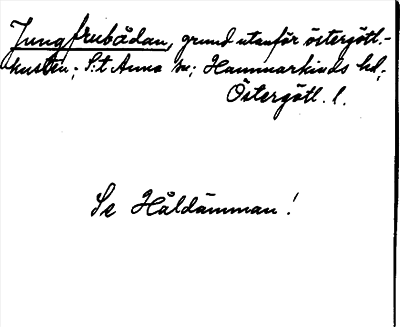 Jungfrubådan, grund utanför östergötl.-
kusten; S:t Anna sn; Hammarkinds hd,
Östergötl. l.
Se Håldämman!